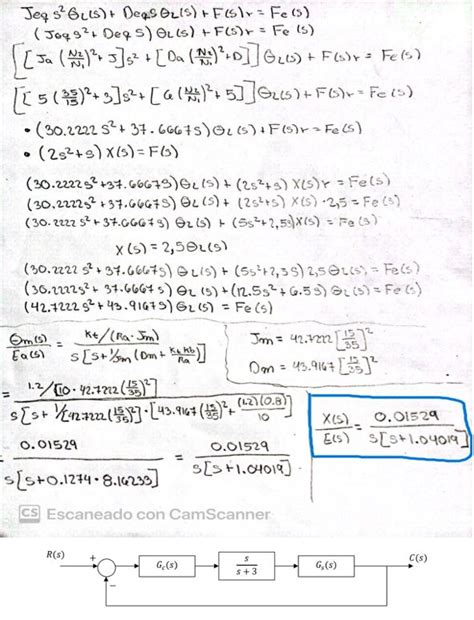 Jeq s² θL(s) + Deq s θL(s) + F(s)r = Fe(s)
(Jeq s² + Deq s) θL(s) + F(s)r = Fe(s)
[[Ja (N2/N1)² + J] s² + [Da (N2/N1)² + D]] θL(s) + F(s)r = Fe(s)
[[5 (35/15)² + 3] s² + [6 (N2/N1)² + 5]] θL(s) + F(s)r = Fe(s)
• (30.2222 s² + 37.6667s) θL(s) + F(s)r = Fe(s)
• (2s² + s) X(s) = F(s)
(30.2222s² + 37.6667s) θL(s) + (2s² + s) X(s) r = Fe(s)
(30.2222 s² + 37.6667s) θL(s) + (2s² + s) X(s) · 2,5 = Fe(s)
(30.2222 s² + 37.6667s) θL(s) + (5s² + 2,5s) X(s) = Fe(s)
X(s) = 2,5 θL(s)
(30.2222 s² + 37.6667s) θL(s) + (5s² + 2,5s) 2,5 θL(s) = Fe(s)
(30.2222s² + 37.6667s) θL(s) + (12.5s² + 6.5s) θL(s) = Fe(s)
(42.7222s² + 43.9167s) θL(s) = Fe(s)
θm(s)/Ea(s) = Kt/(Ra·Jm) / s[s + 1/Jm (Dm + KtKb/Ra)]
Jm = 42.7222 [15/35]²
Dm = 43.9167 [15/35]²
= 1.2/[10 · 42.7222(15/35)²] / s[s + 1/[42.7222(15/35)²] · [43.9167(15/35)² + (1.2)(0.8)/10]
X(s)/E(s) = 0.01529 / s[s+1.04019]
0.01529 / s[s+0.1274 · 8.16233] = 0.01529 / s[s+1.04019]
CS Escaneado con CamScanner
R(s) + − Gc(s) s/(s + 3) Gs(s) C(s)